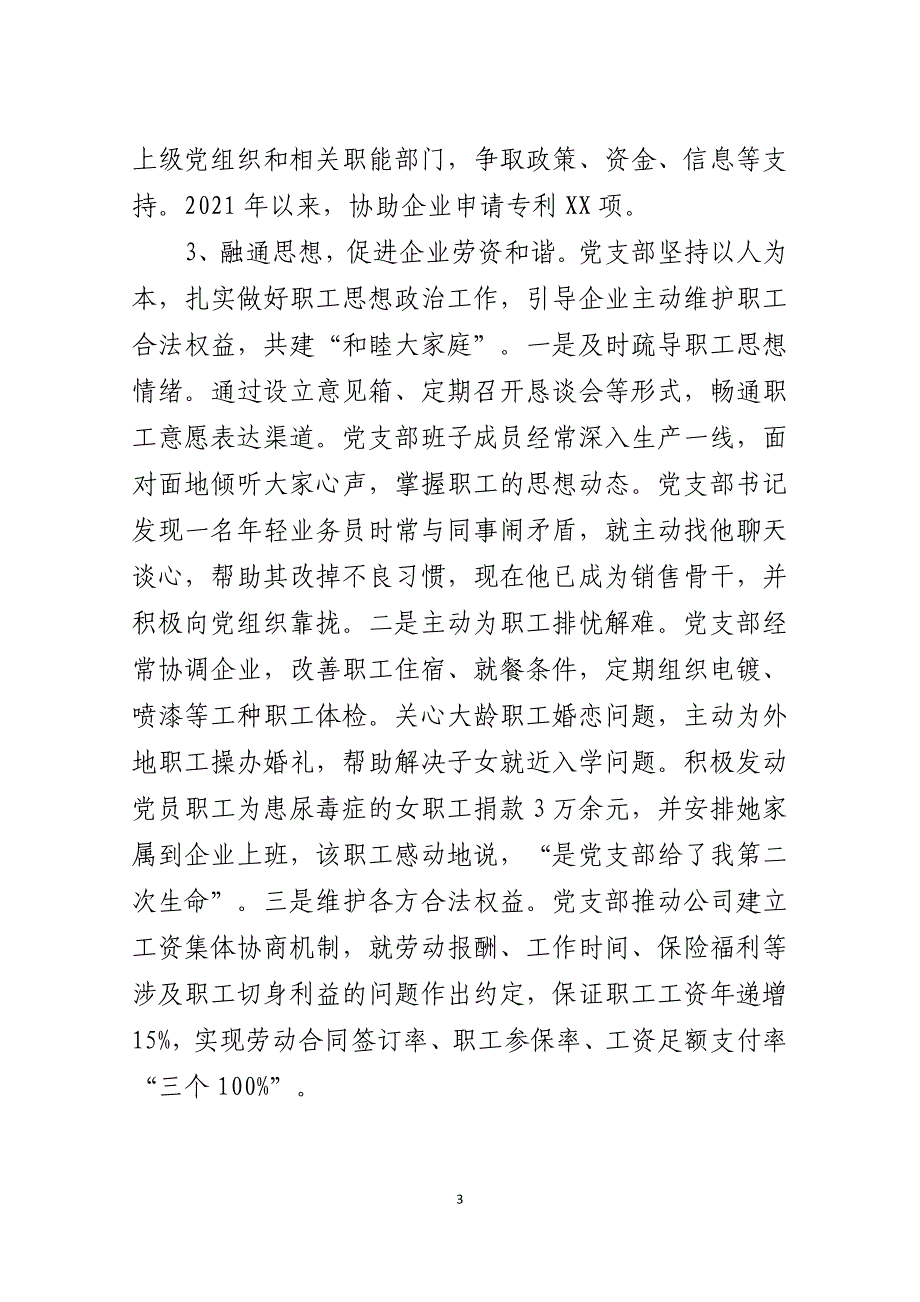 上级党组织和相关职能部门，争取政策、资金、信息等支
持。2021 年以来，协助企业申请专利 XX 项。
3、融通思想，促进企业劳资和谐。党支部坚持以人为
本，扎实做好职工思想政治工作，引导企业主动维护职工
合法权益，共建“和睦大家庭”。一是及时疏导职工思想
情绪。通过设立意见箱、定期召开恳谈会等形式，畅通职
工意愿表达渠道。党支部班子成员经常深入生产一线，面
对面地倾听大家心声，掌握职工的思想动态。党支部书记
发现一名年轻业务员时常与同事闹矛盾，就主动找他聊天
谈心，帮助其改掉不良习惯，现在他已成为销售骨干，并
积极向党组织靠拢。二是主动为职工排忧解难。党支部经
常协调企业，改善职工住宿、就餐条件，定期组织电镀、
喷漆等工种职工体检。关心大龄职工婚恋问题，主动为外
地职工操办婚礼，帮助解决子女就近入学问题。积极发动
党员职工为患尿毒症的女职工捐款 3 万余元，并安排她家
属到企业上班，该职工感动地说，“是党支部给了我第二
次生命”。三是维护各方合法权益。党支部推动公司建立
工资集体协商机制，就劳动报酬、工作时间、保险福利等
涉及职工切身利益的问题作出约定，保证职工工资年递增
15%，实现劳动合同签订率、职工参保率、工资足额支付率
“三个 100%”。
3